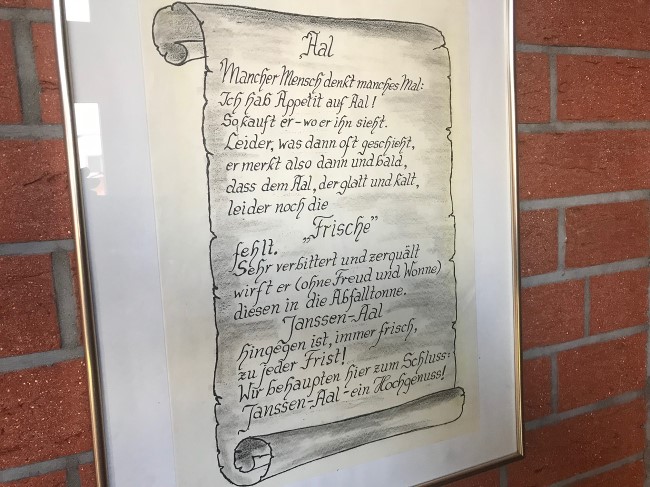 Aal
Mancher Mensch denkt manches Mal:
Ich hab Appetit auf Aal!
So kauft er - wo er ihn sieht.
Leider, was dann oft geschieht,
er merkt also dann und bald,
dass dem Aal, der glatt und kalt,
leider noch die
„Frische”
fehlt.
Sehr verbittert und zerquält
wirft er (ohne Freud und Wonne)
diesen in die Abfalltonne.
Janssen-Aal
hingegen ist, immer frisch,
zu jeder Frist!
Wir behaupten hier zum Schluss:
Janssen-Aal - ein Hochgenuss!